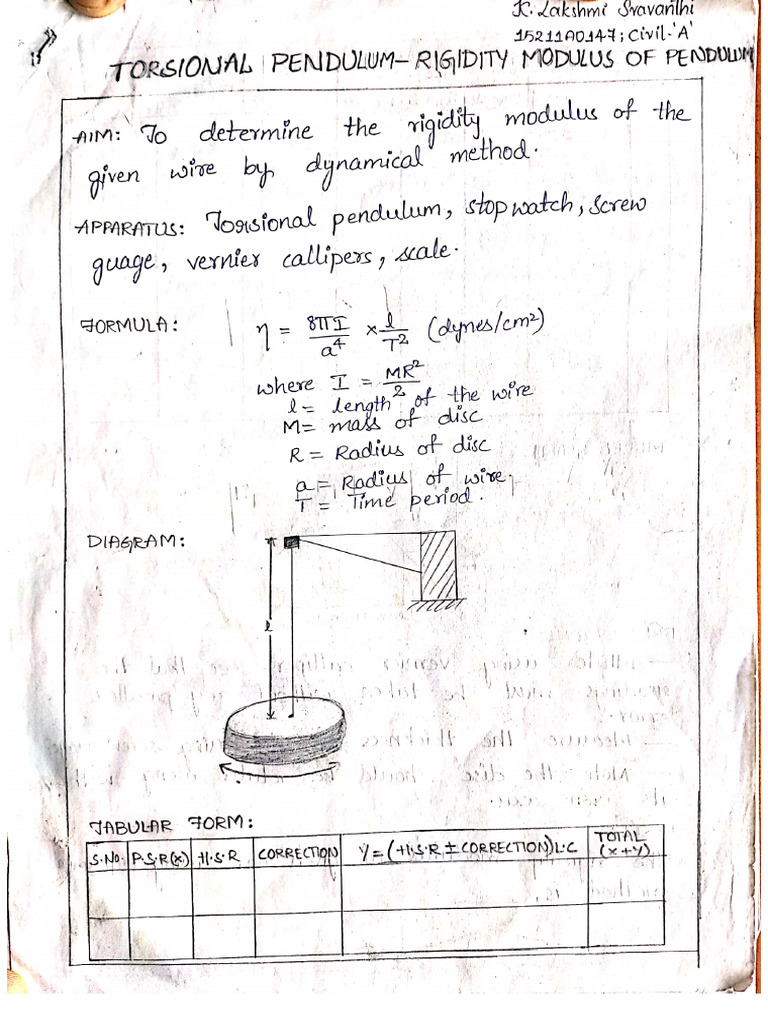 K. Lakshmi Sravanthi
15211A0147; Civil-'A'
TORSIONAL PENDULUM - RIGIDITY MODULUS OF PENDULUM
AIM: To determine the rigidity modulus of the
given wire by dynamical method.
APPARATUS: Torsional pendulum, stopwatch, screw
guage, vernier callipers, scale.
FORMULA: η = 8πI/a⁴ × l/T² (dynes/cm²)
where I = MR²/2
l = length of the wire
M = mass of disc
R = Radius of disc
a = Radius of wire.
T = Time period.
DIAGRAM:
l
TABULAR FORM:
S.NO. P.S.R(x) H.S.R CORRECTION Y = (H.S.R ± CORRECTION)L.C TOTAL (x+y)